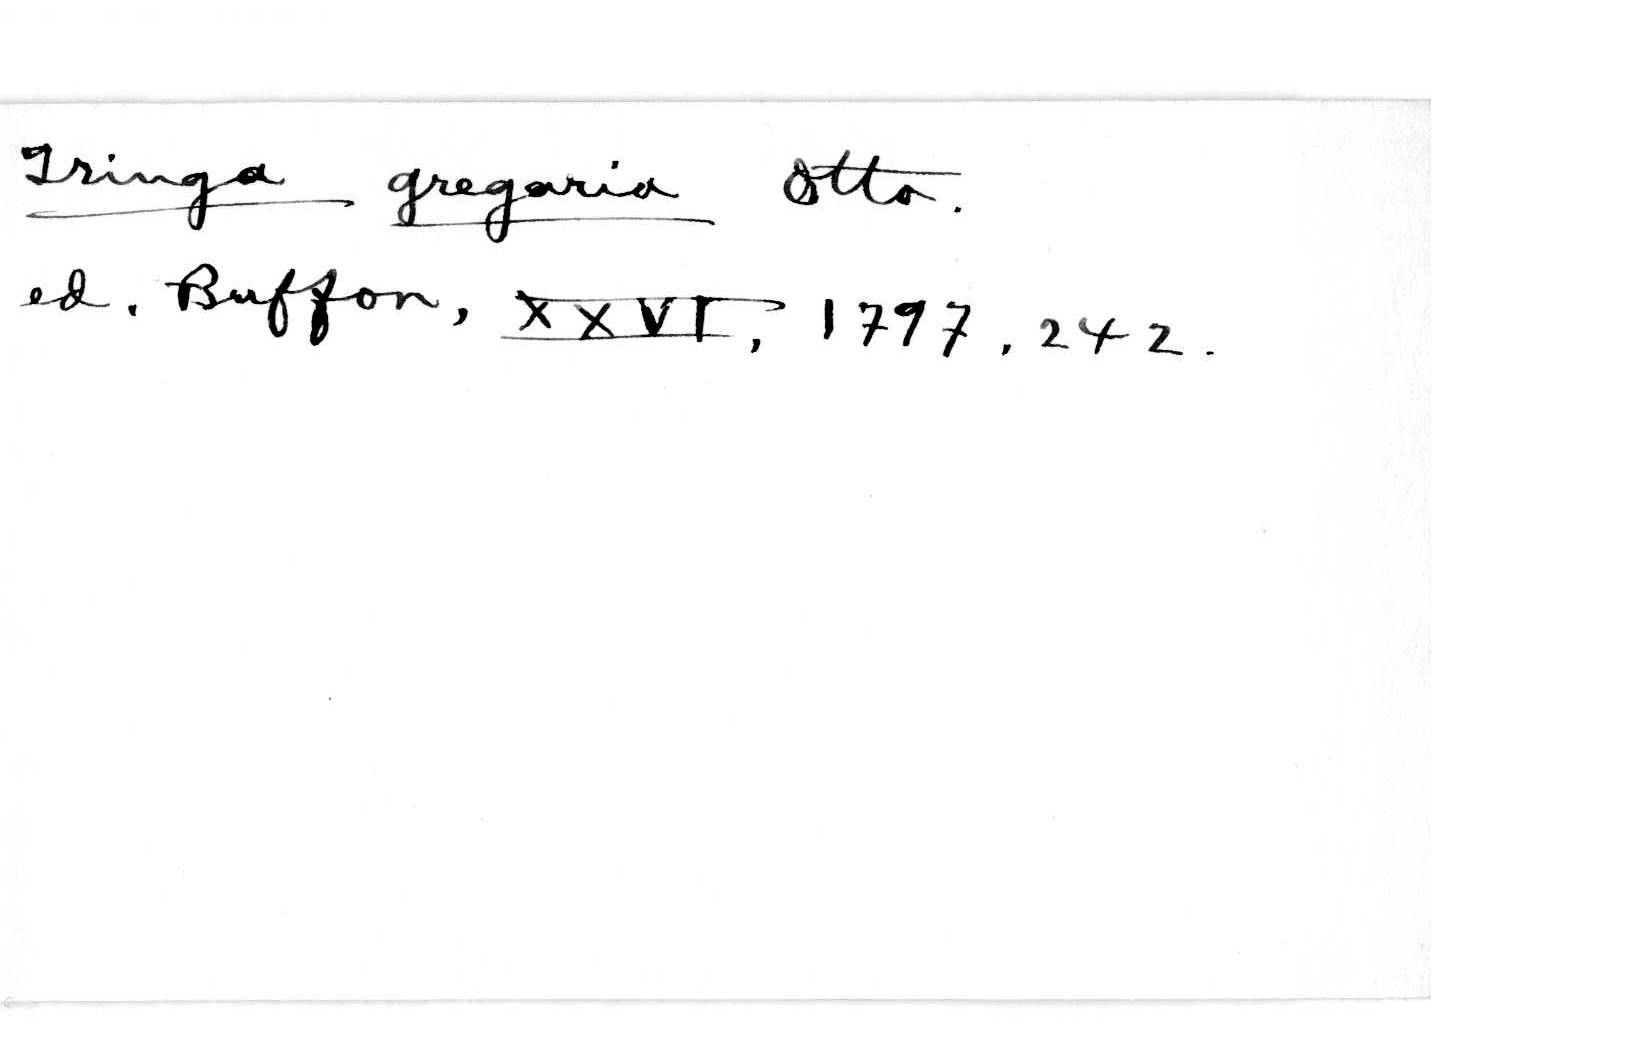 Tringa gregaria Otto.
ed. Buffon, XXVI, 1797, 242.